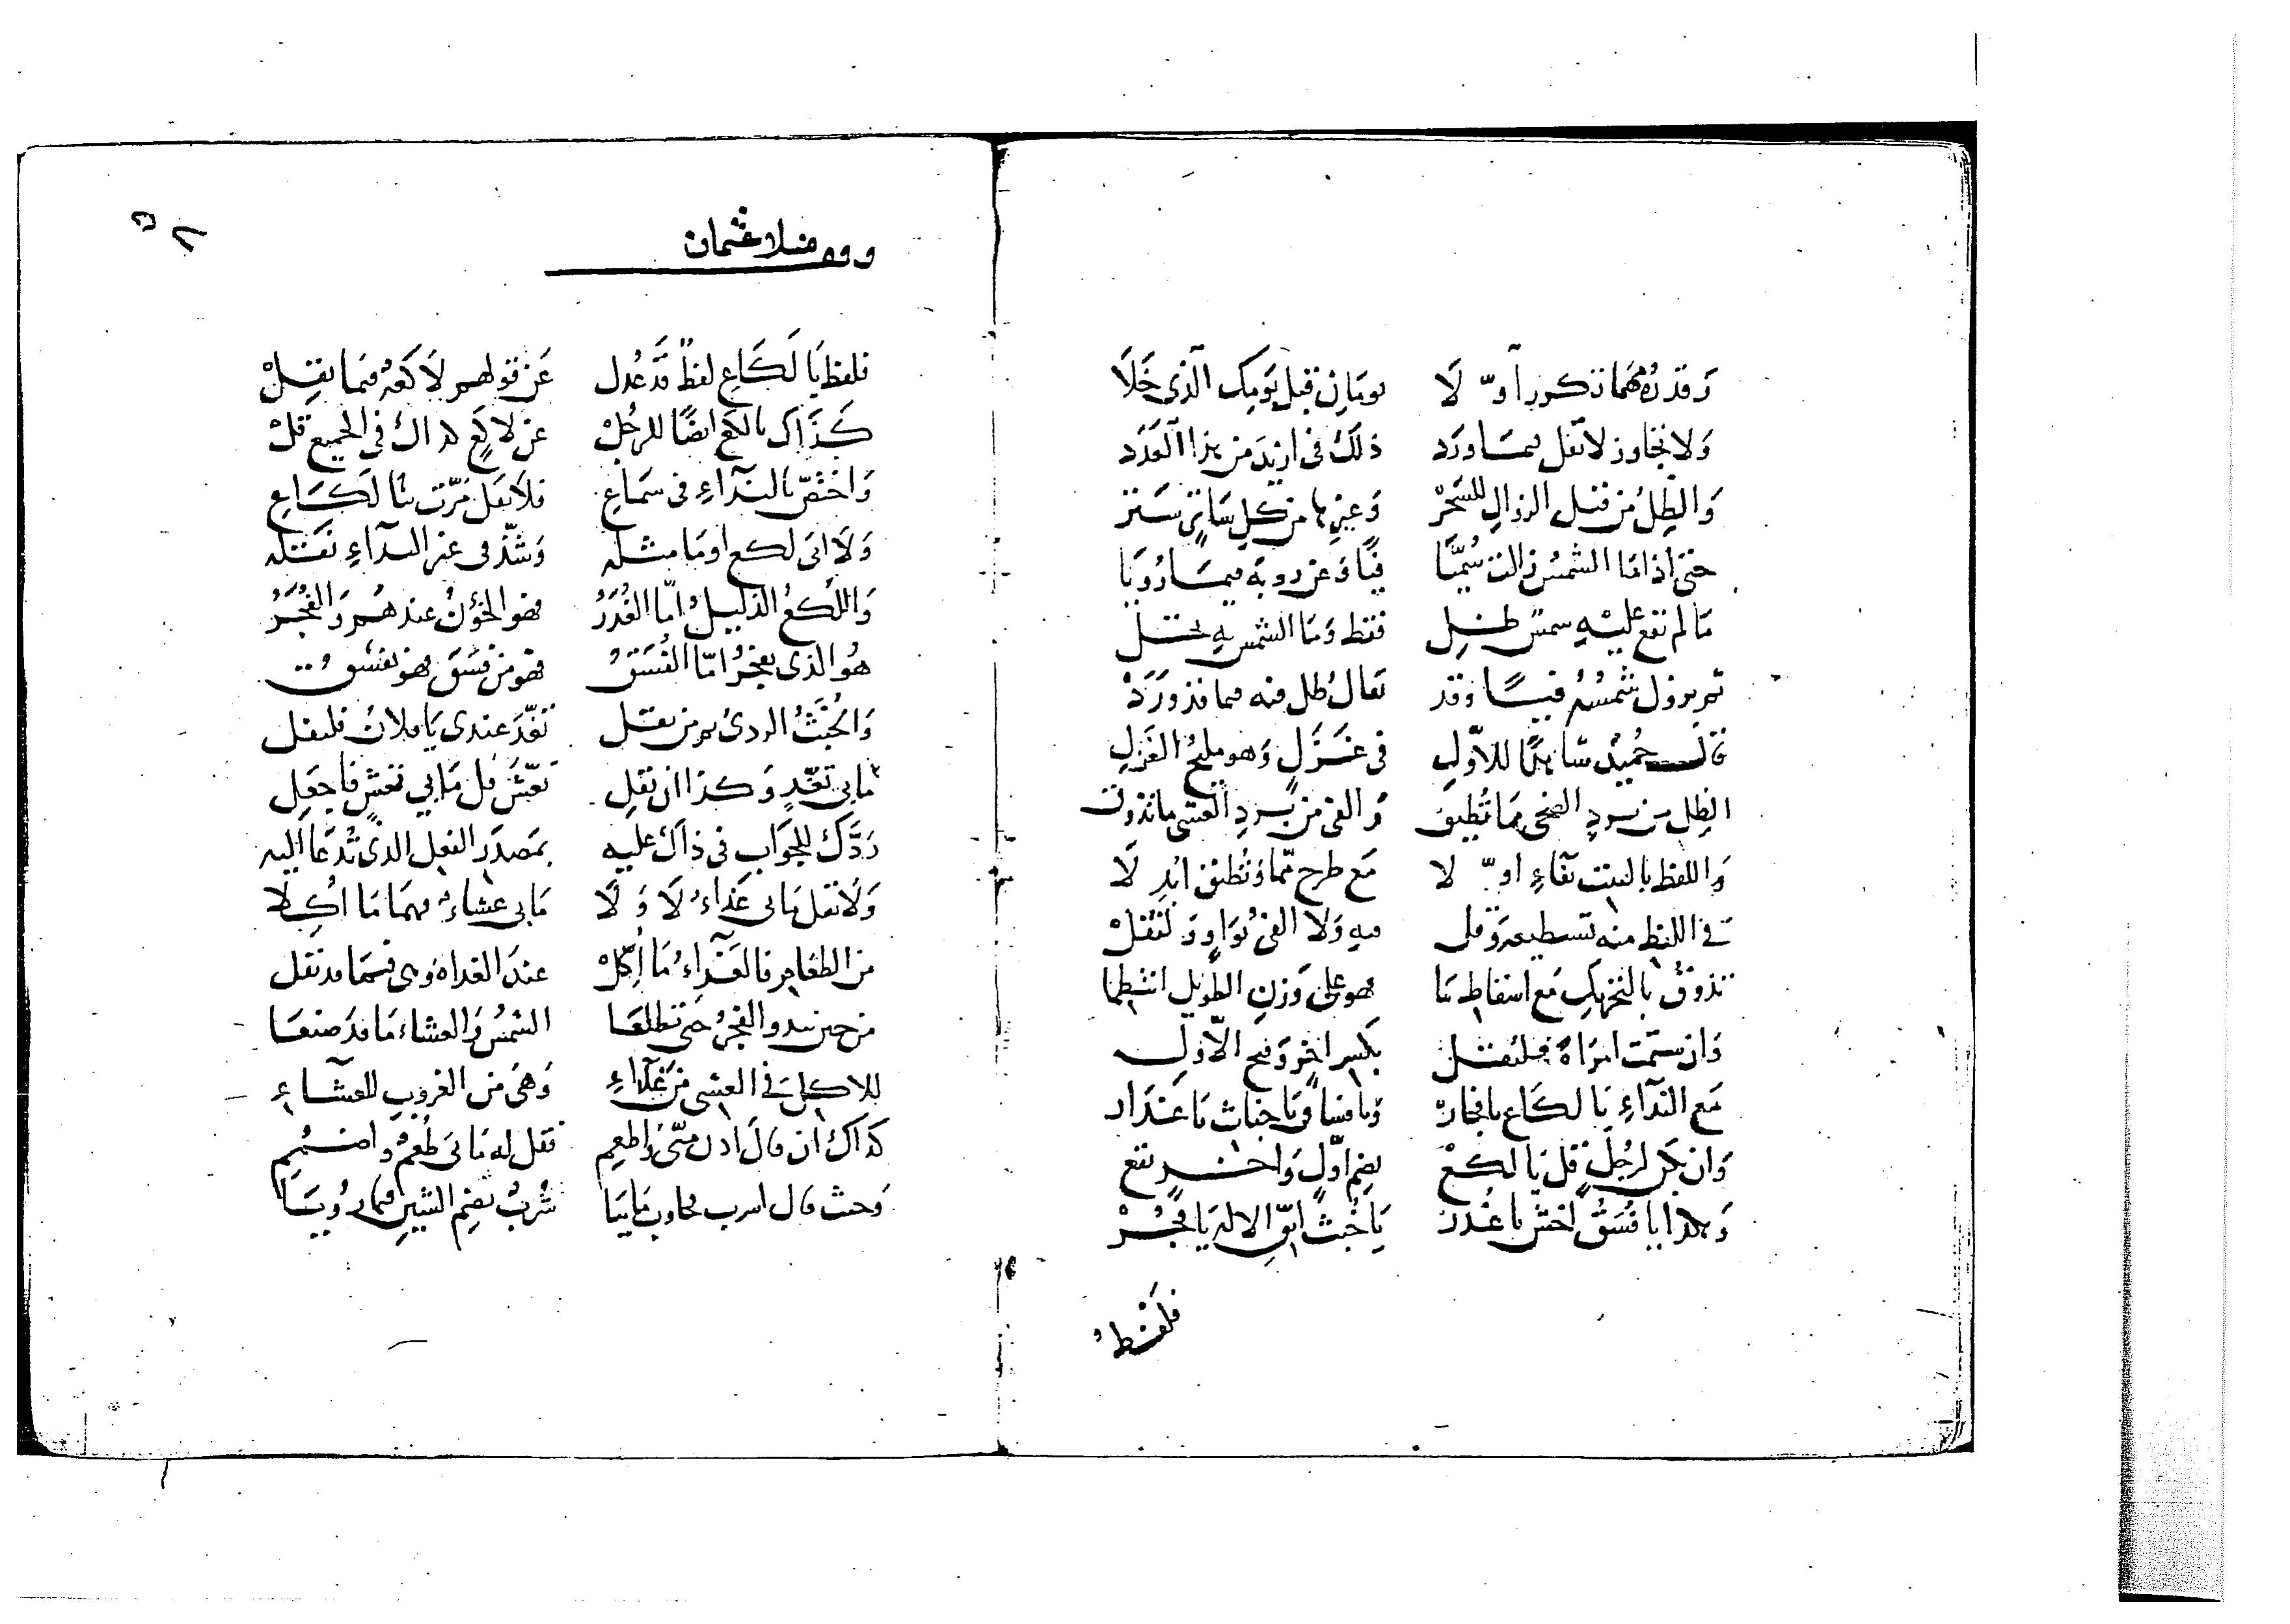 وقدره مهما تذكورا أوّلا يومان قبل يومك الذي خلا
ولا تجاوز لا تقل فيما ورد ذلك في ازيد من هذا العدد
والظل من قبل الزوال للسحر وغيرها من كل ساتر ستر
حتى اذا ما الشمس زالت سميا فيا وعن روبة فيما رويا
ما لم تقع عليه شمس ظل فقط وما الشمس به تحل
ثم يزول شمسه فيئا وقد يقال ظل فيه فيما قد ورد
قال حميد شاهدا للاول في غزل وهو مليح الغزل
الظل من برد الضحى ما تطيق والفي من برد العشي ما تذوق
واللفظ بالبيت بفاء اوّلا مع طرح
في اللفظ منه تستطيعه وقل فيه ولا الفي بواو ولتقل
تذوق بالتحريك مع اسقاط ما فهو على وزن الطويل انتظما
وان شتمت امراة فلتقل بكسر اخر وفتح الاول
مع النداء يا لكاع يا فجار ويا فساق يا خباث يا غدار
وان يكن لرجل قل يا لكع بضم اول واخر تقع
وهكذا يا فسق اخش يا غدر يا خبث اتق الاله يا فجر
فلفظ
عثمان
فلفظ يا لكاع لفظ قد عدل عن قولهم لاكعة فيما نقل
كذاك يا لكع ايضا للرجل عن لاكع كذاك في الجميع قل
واختص بالنداء في سماع فلا تقل مرت بنا لكاع
ولا اتى لكع او ما مثله وشذ في غير النداء نقله
واللكع الذليل اما الغدر فهو الخؤن عندهم والفجر
هو الذي يفجر اما الفسق فهو من فسق فهو يفسق
والخبث الردئ ثم من يقل تغد عندي يا فلان فليقل
ما بي تغد وكذا ان تقل تعش قل ما بي تعش فاجعل
ردك للجواب في ذاك عليه بمصدر الفعل الذي تدعا اليه
ولا تقل ما بي غداء لا ولا ما بي عشاء فهما ما اكلا
من الطعام فالغداء ما اكل عند الغداة وهي فيما قد نقل
من حين يبدو الفجر حتى تطلعا الشمس والعشاء ما قد صنعا
للاكل في العشي من غداء وهي من الغروب للعشاء
كذاك ان قال ادن منى واطعم فقل له ما بي طعم واضمم
وحيث قال اشرب فجاوب ما بيا شرب بضم الشين فيما رويا